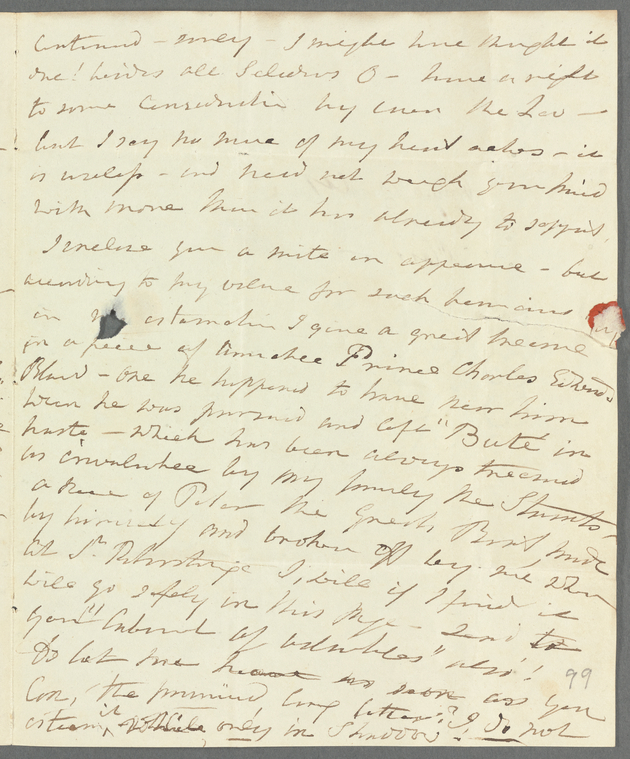 continued - surely - I might have thought it
one! besides all Soldiers O - have a right
to some consideration by even the Law -
but I say no more of my head aches - it
is useless - and need not weigh your mind
with more than it has already to support
I inclose you a mite in appearance - but
according to my value for such
in estimation I gave a great treasure
in a piece of Prince Charles Edward's
Blood - one he happened to have near him
when he was pursued and left "Bute" in
haste - which has been always treasured
as invaluable by my family the Stuarts -
a piece of Peter the Great's made
by himself and broken off by me when
at St. Petersburg I will if I find it
will go safely in this page - send to
your "Cabinet of valuables" also!!
Do let me hear as soon as you
can, the promised long letter? I do not
esteem it only in Shadow!
99